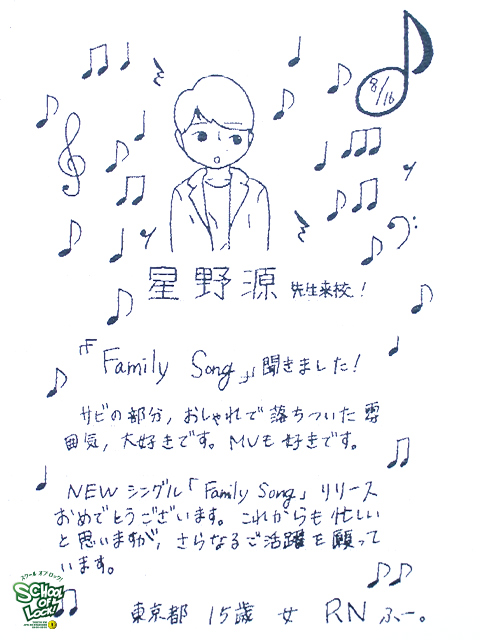 8/16
星野源 先生来校!
『Family Song』聞きました!
サビの部分,おしゃれで落ちついた雰
囲気,大好きです。MVも好きです。
NEWシングル「Family Song」リリース
おめでとうございます。これからも忙しい
と思いますが,さらなるご活躍を願って
います。
スクール オブ ロック!
SCHOOL
OF
LOCK!
東京都 15歳 女 RN ふー。